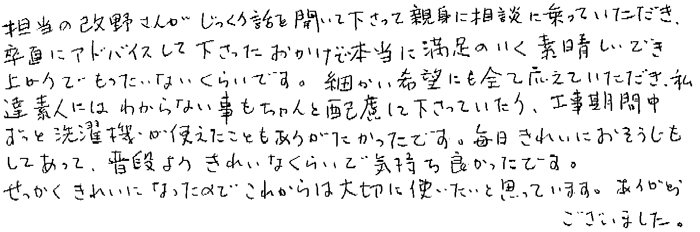 担当の改野さんがじっくり話を聞いて下さって親身に相談に乗っていただき、
卒直にアドバイスして下さったおかげで本当に満足のいく素晴しいでき
上がりでもったいないくらいです。細かい希望にも全て応えていただき、私
達素人にはわからない事もちゃんと配慮して下さっていたり、工事期間中
ずっと洗濯機が使えたこともありがたかったです。毎日きれいにおそうじも
してあって、普段よりきれいなくらいで気持ち良かったです。
せっかくきれいになったのでこれからは大切に使いたいと思っています。ありがとう
ございました。